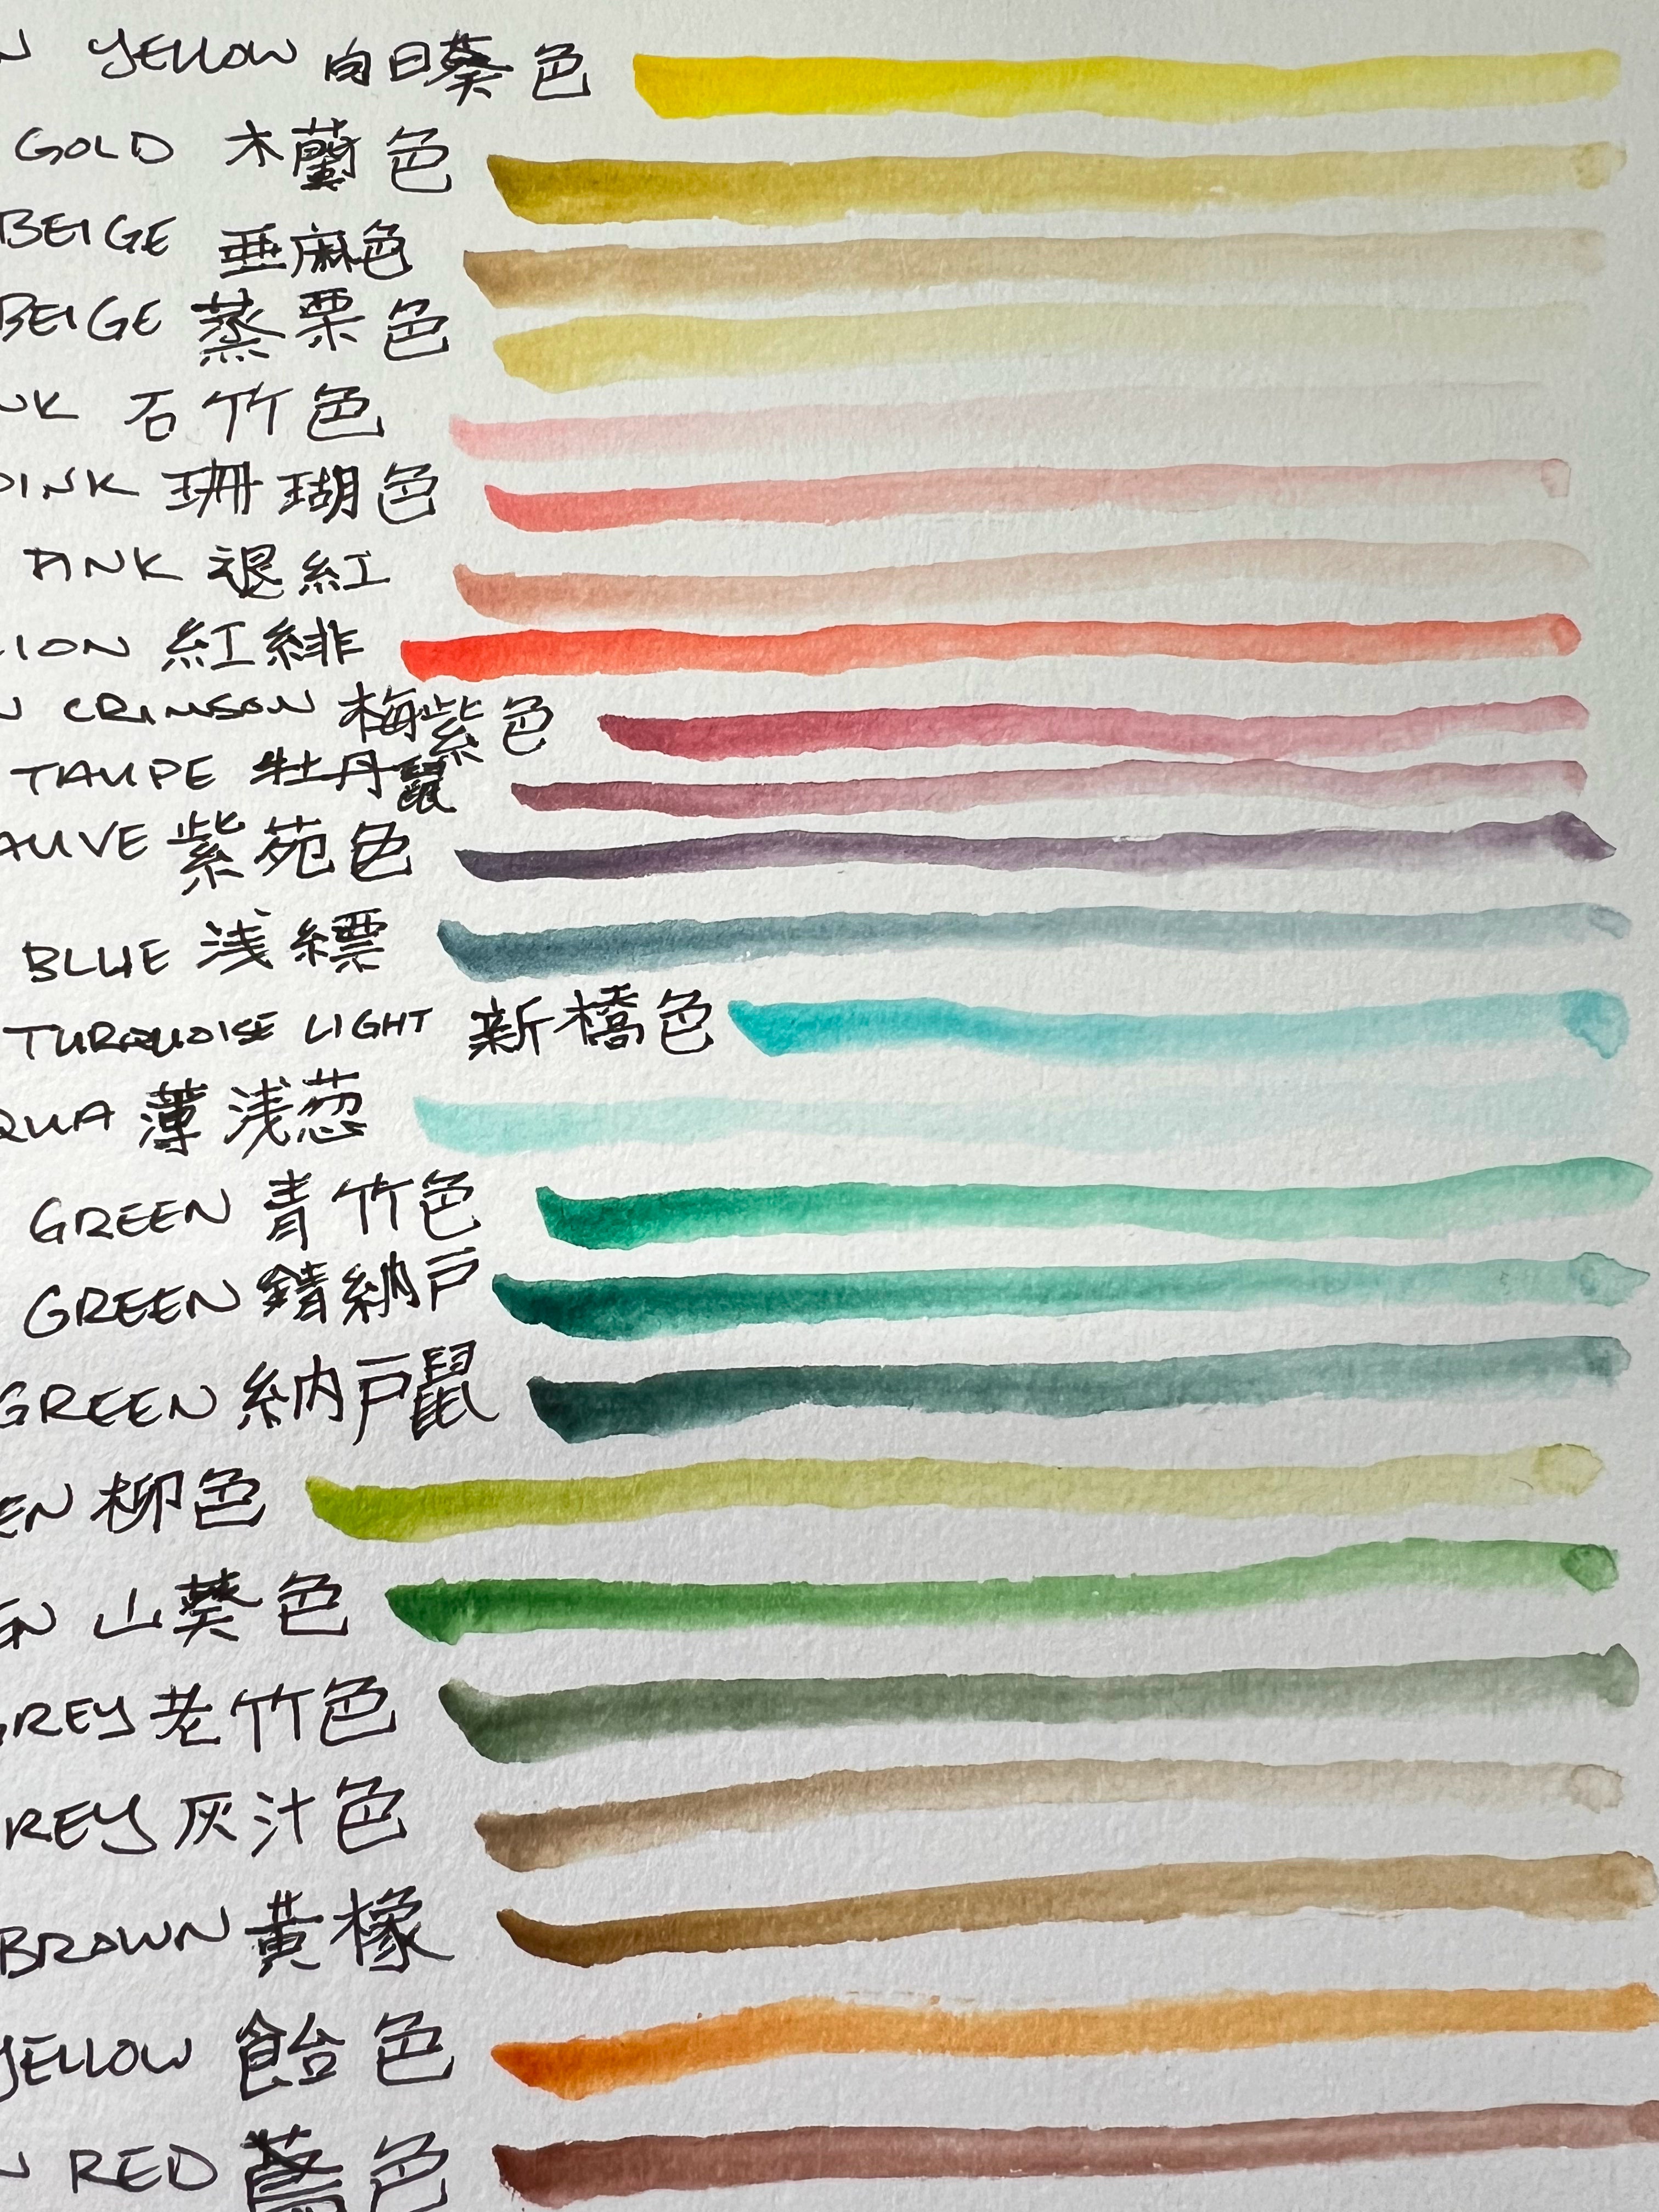 N YELLOW 向日葵色
GOLD 木蘭色
BEIGE 亜麻色
BEIGE 蒸栗色
NK 石竹色
PINK 珊瑚色
PINK 褪紅
LION 紅緋
N CRIMSON 梅紫色
TAUPE 牡丹鼠
AUVE 紫苑色
BLUE 浅縹
TURQUOISE LIGHT 新橋色
QUA 薄浅葱
GREEN 青竹色
GREEN 錆納戸
GREEN 納戸鼠
EN 柳色
EN 山葵色
GREY 老竹色
REY 灰汁色
BROWN 黄橡
YELLOW 飴色
N RED 色